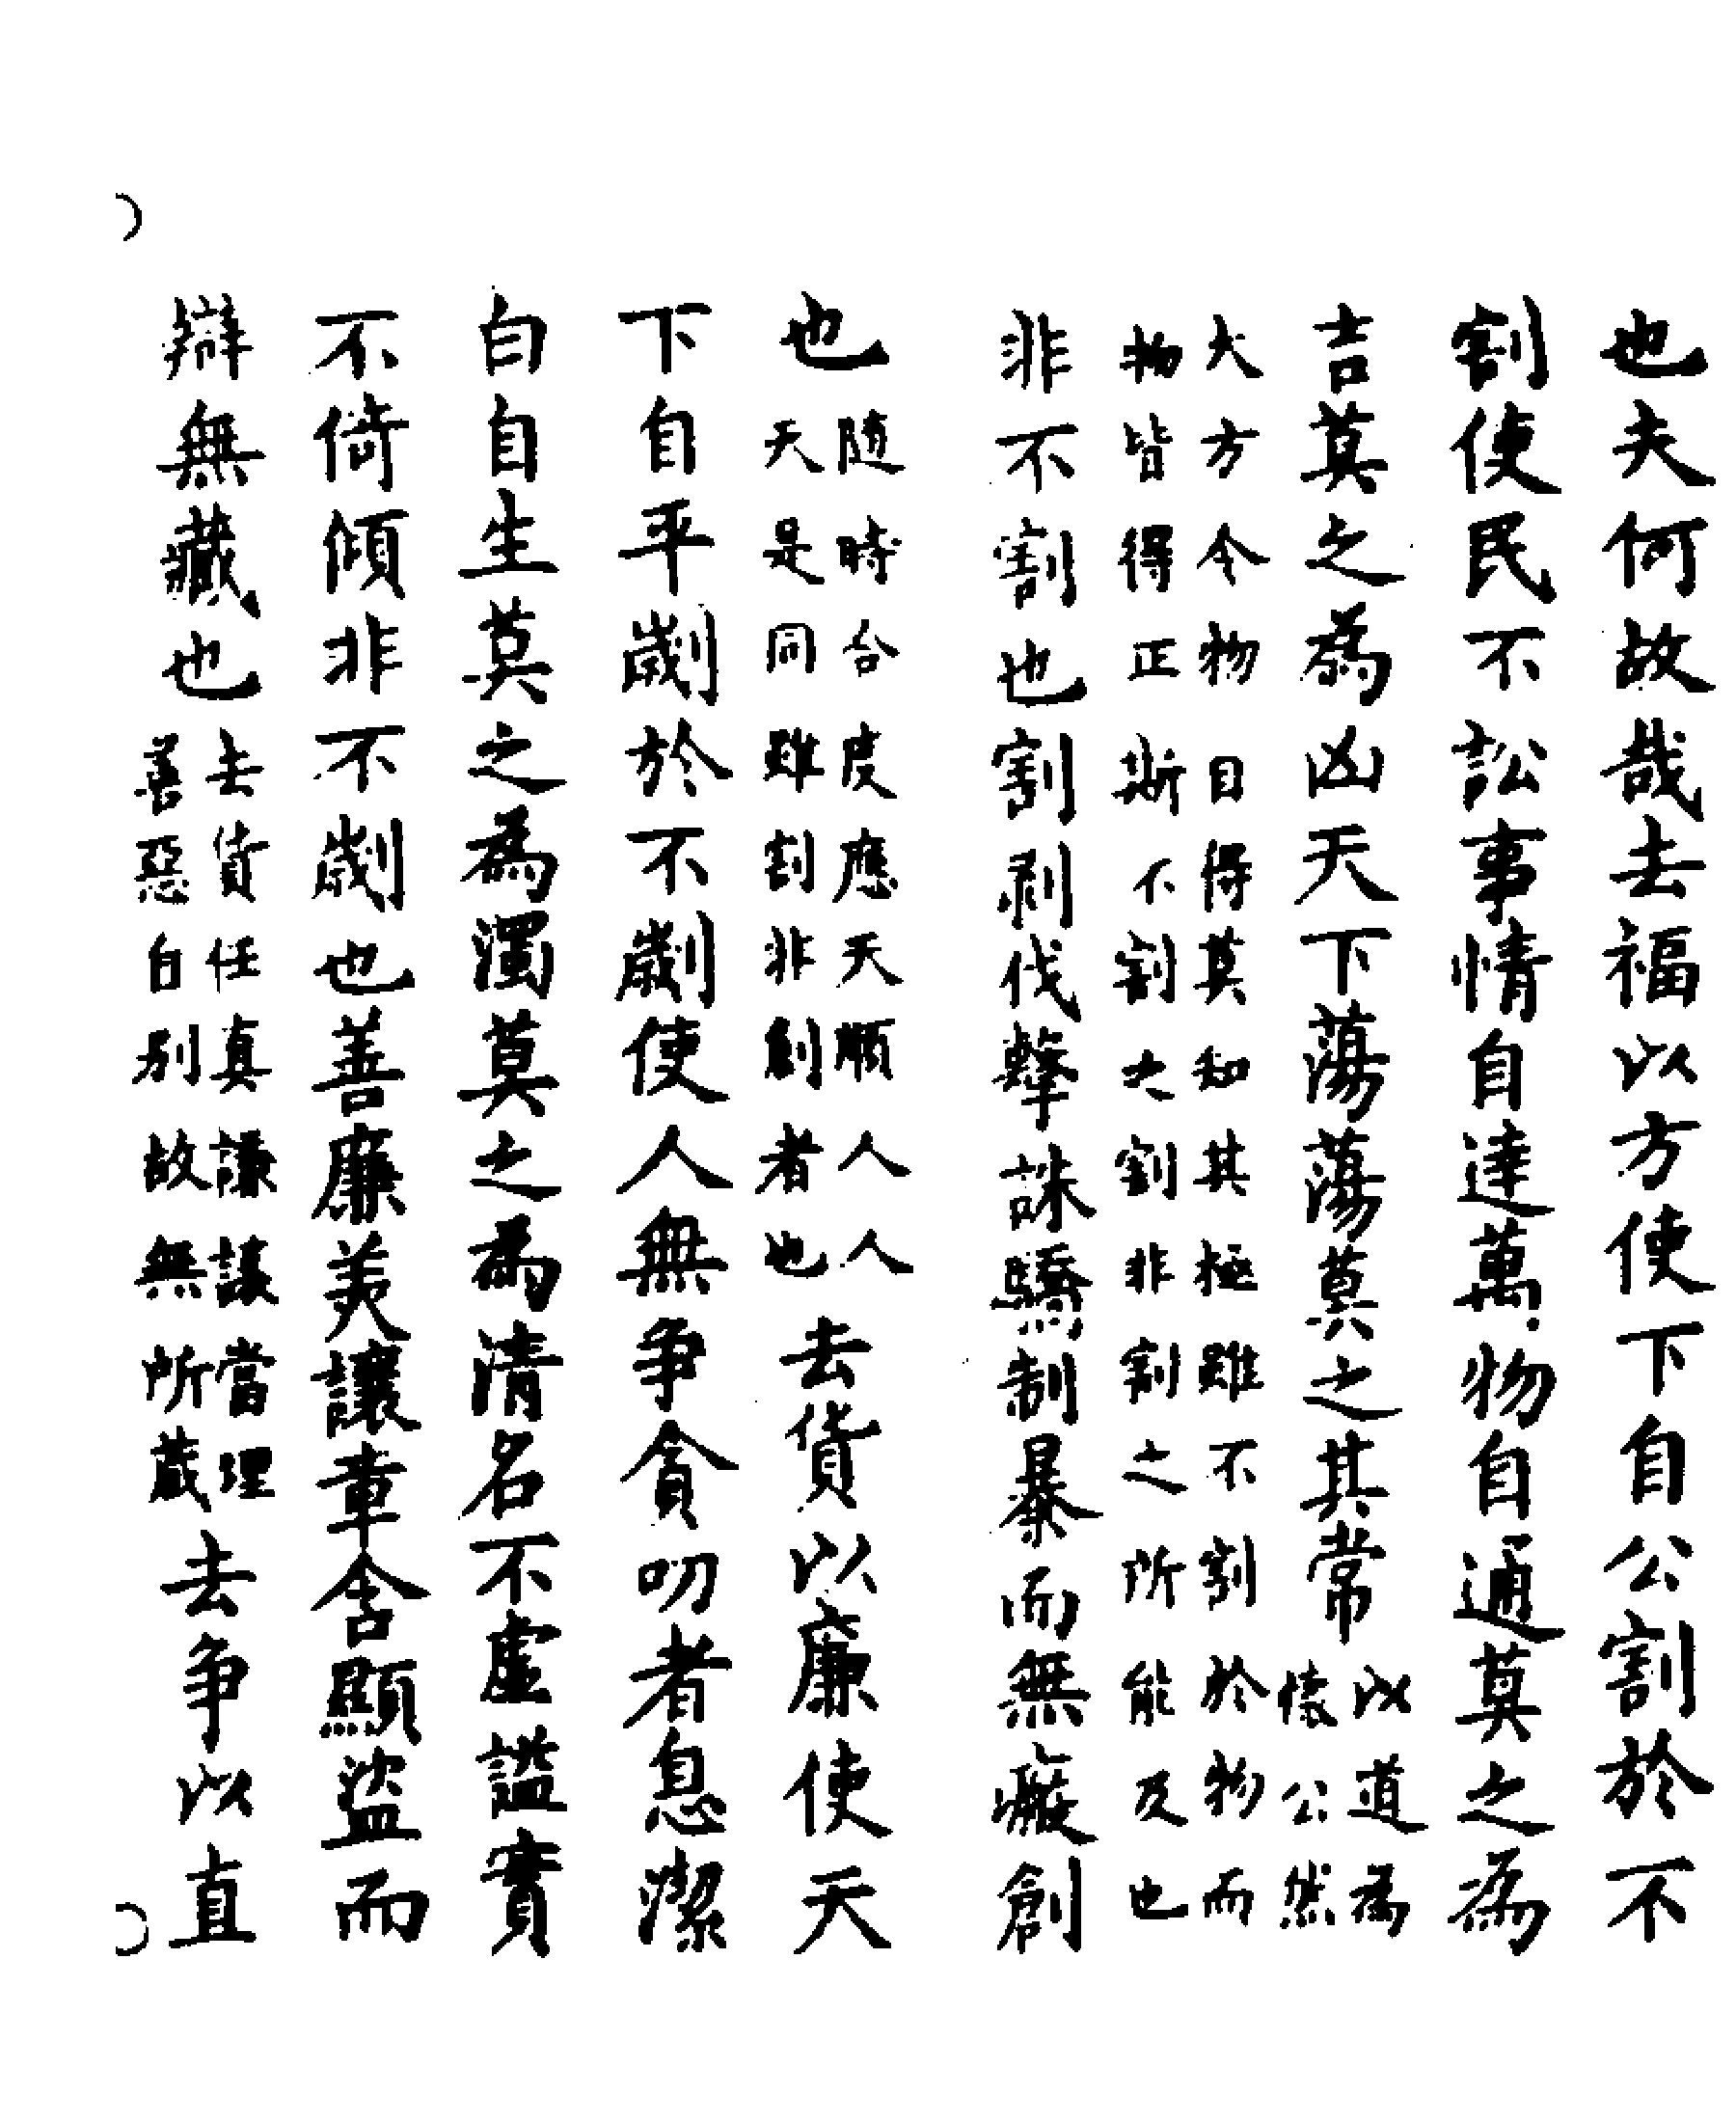 也夫何故哉去福以方使下自公割於不
割使民不訟事情自達萬物自通莫之為
吉莫之為凶天下蕩蕩莫之其常
以道為
懷公然
大方令物自得莫知其極雖不割於物而
物皆得正斯不割大割非割之所能及也
非不割也割剥伐孽誅驕制暴而無癈創
也
随時合度應天順人人
天是同雖割非割者也
去貨以廉使天
下自平劌於不劌使人無争貪叨者息潔
白自生莫之為濁莫之為清名不虛謚實
不倚傾非不劌也善廉美讓章含顯盜而
辯無藏也
去貨任真謙讓當理
善惡白別故無所蔵
去争以直